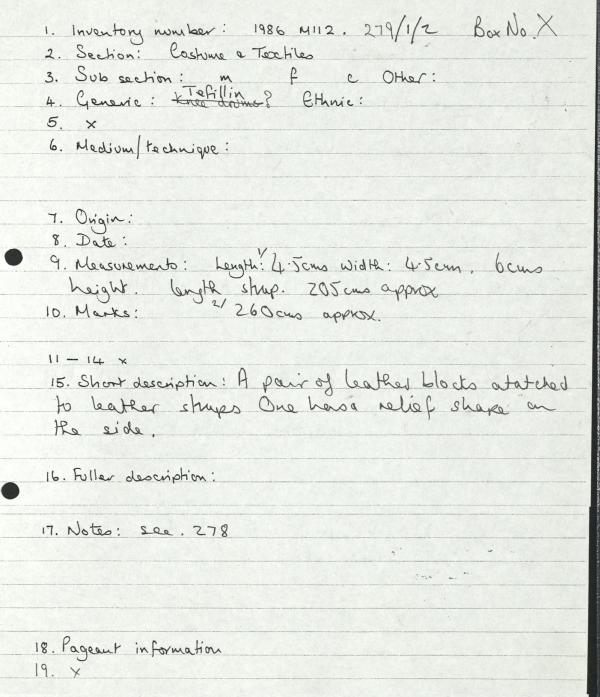 1. Inventory number: 1986 M112. 279/1/2 Box No. X
2. Section: Costume & Textiles
3. Sub section: m f c Other:
Tefillin
4. Generic: knee drums? Ethnic:
5. x
6. Medium/technique:
7. Origin:
8. Date:
9. Measurements: Length: 1/ 4.5cms width: 4.5cm. 6cms
height. length strap. 205cms approx
10. Marks: 2/ 260cms approx.
11 - 14 x
15. Short description: A pair of leather blocks atatched
to leather straps One hasa relief shape on
the side.
16. Fuller description:
17. Notes: see. 278
18. Pageant information
19. x